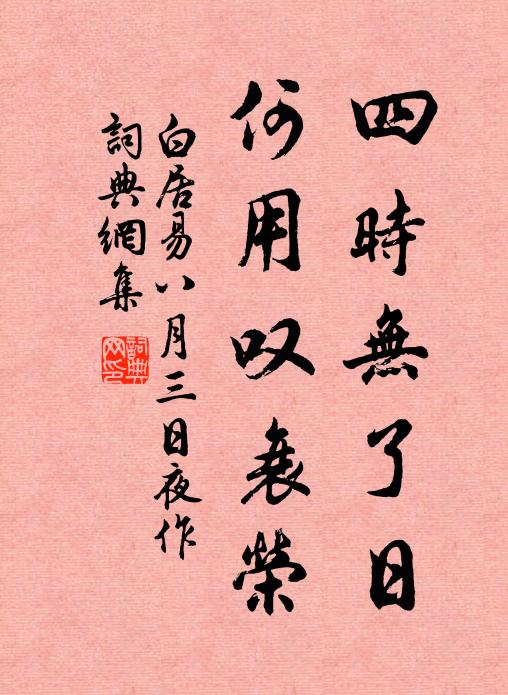 四時無了日
何用叹衰榮
白居易八月三日夜作
詞典網集
詞典
网印